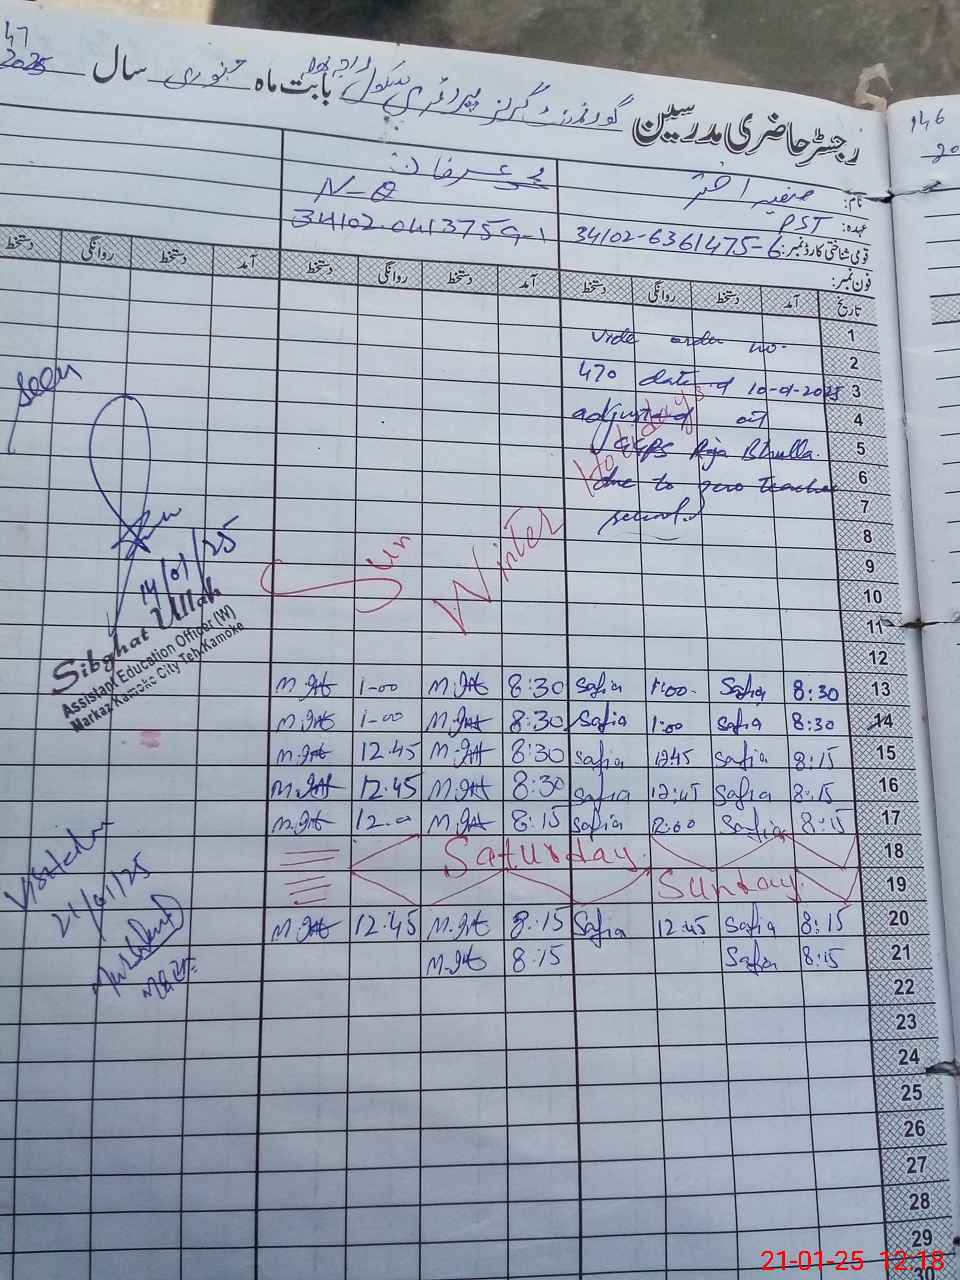 47
2025
رجسٹر حاضری مدرسین گورنمنٹ گرلز پرائمری سکول بابت ماہ جنوری سال
نام: صفیہ اختر محمد عرفان
عہدہ: PST N-Q
قومی شناختی کارڈ نمبر: 34102-6361475-6 34102-0413759-1
فون نمبر:
تاریخ آمد دستخط روانگی دستخط آمد دستخط روانگی دستخط آمد دستخط روانگی دستخط
1
vide order no.
2
470 dated 10-01-2025
3
adjusted at
4
GGPS Raja Bhulla
5
due to zero teacher
6
school.
7
8
9
10
11
12
Holidays
Winter
Sun
13 8:30 Safia 1:00 Safia 8:30 M.Irf 1-00 M.Irf
14 8:30 Safia 1:00 Safia 8:30 M.Irf 1-00 M.Irf
15 8:15 Safia 12:45 Safia 8:30 M.Irf 12.45 M.Irf
16 8:15 Safia 12:45 Safia 8:30 M.Irf 12.45 M.Irf
17 8:15 Safia 12:00 Safia 8:15 M.Irf 12.0 M.Irf
18 Saturday
19 Sunday
20 8:15 Safia 12:45 Safia 8:15 M.Irf 12.45 M.Irf
21 8:15 Safia 8:15 M.Irf
22
23
24
25
26
27
28
29
30
Seen
14/01/25
Sibghat Ullah
Assistant Education Officer (W)
Narkaz Kamoke City Teh. Kamoke
Visited
21/01/25
146
20
21-01-25 12:18